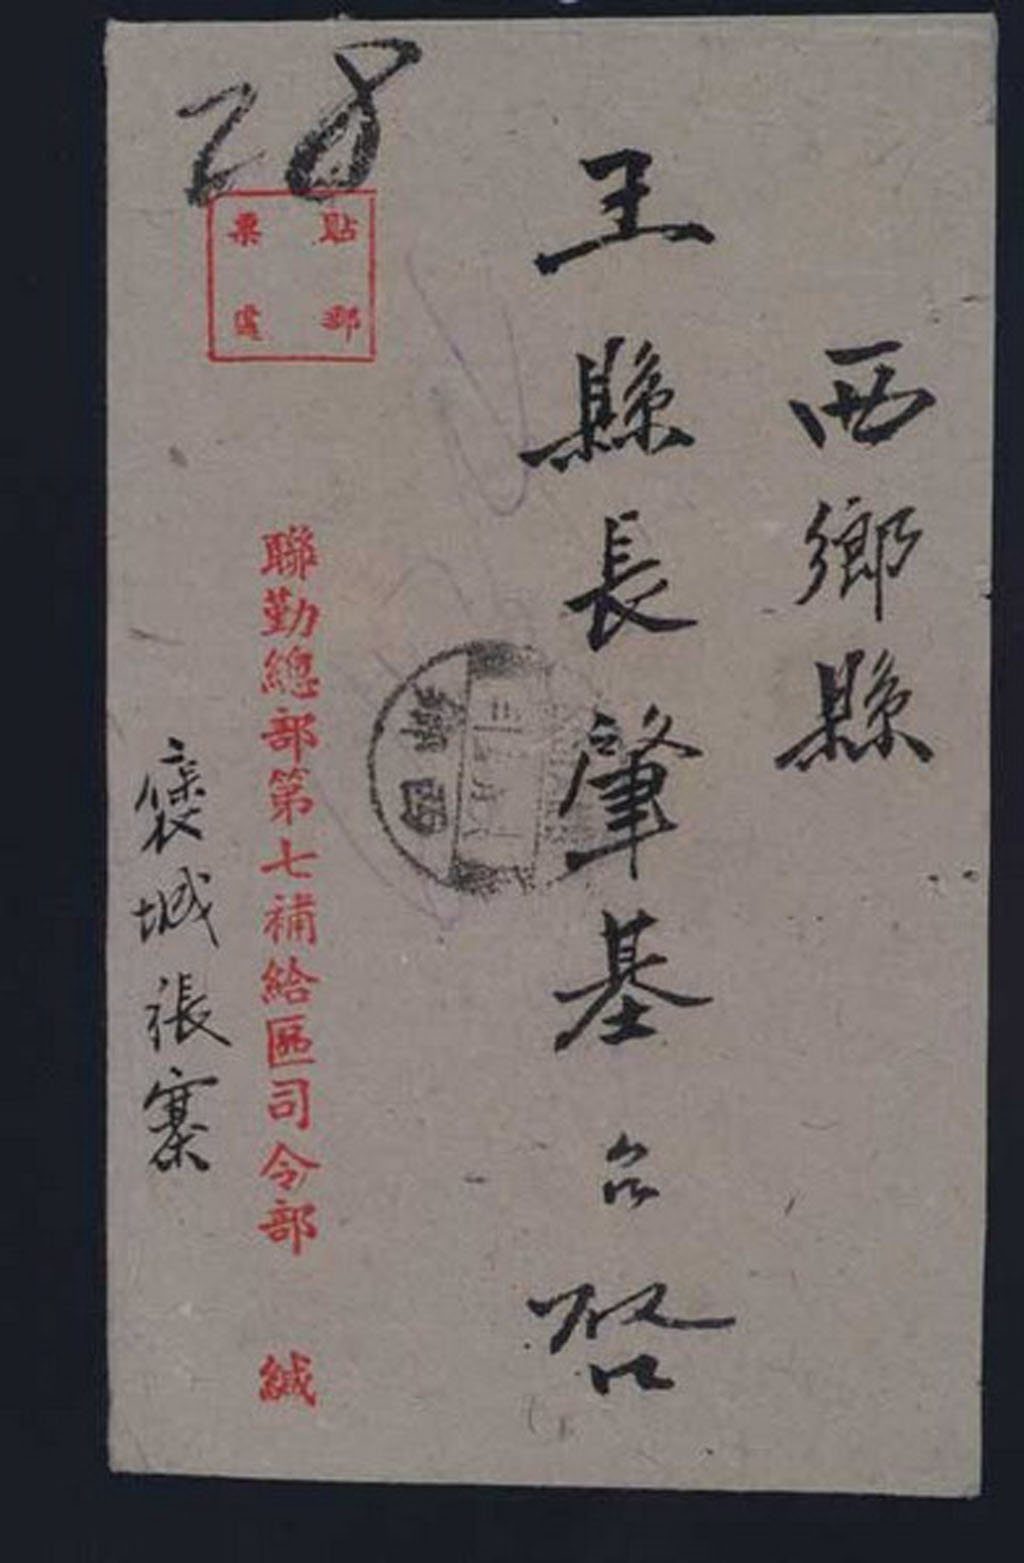 西鄉縣
王縣長肇基台啓
28
貼郵
票處
聯勤總部第七補給區司令部 緘
褒城張寨